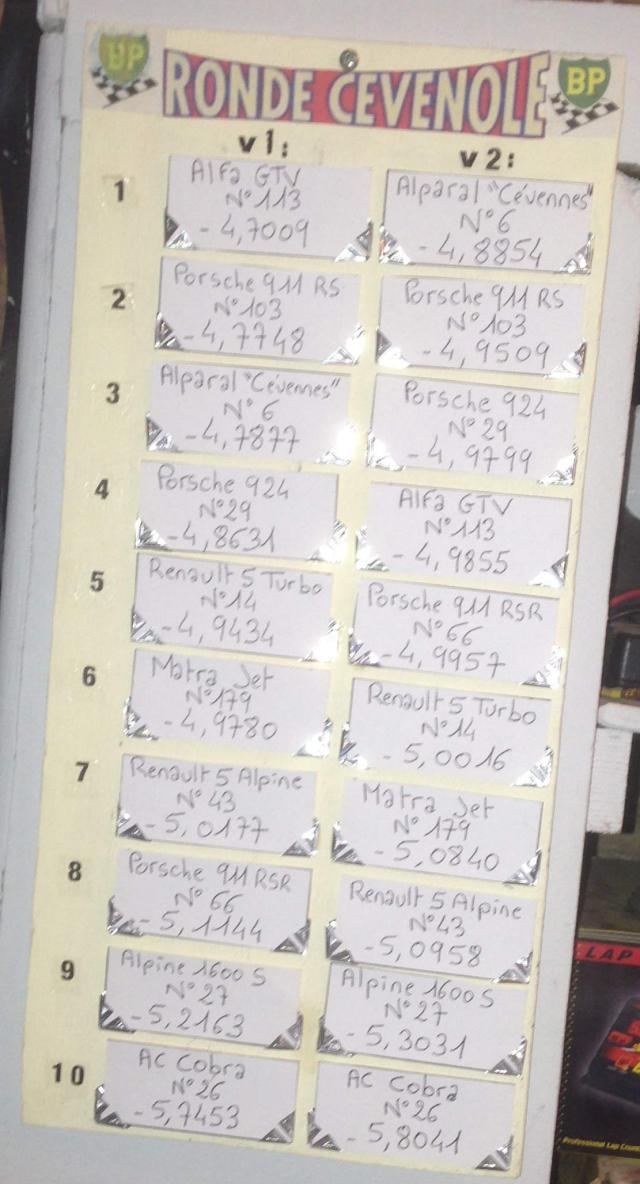 BP
RONDE CEVENOLE
BP
v1:
v2:
1
Alfa GTV
N°113
- 4,7009
Alparal "Cévennes"
N°6
- 4,8854
2
Porsche 911 RS
N°103
- 4,7748
Porsche 911 RS
N°103
- 4,9509
3
Alparal "Cévennes"
N°6
- 4,7877
Porsche 924
N°29
- 4,9799
4
Porsche 924
N°29
- 4,8631
Alfa GTV
N°113
- 4,9855
5
Renault 5 Turbo
N°14
- 4,9434
Porsche 911 RSR
N°66
- 4,9957
6
Matra Jet
N°179
- 4,9780
Renault 5 Turbo
N°14
- 5,0016
7
Renault 5 Alpine
N°43
- 5,0177
Matra Jet
N°179
- 5,0840
8
Porsche 911 RSR
N°66
- 5,1144
Renault 5 Alpine
N°43
- 5,0958
9
Alpine 1600 S
N°27
- 5,2163
Alpine 1600 S
N°27
- 5,3031
10
AC Cobra
N°26
- 5,7453
AC Cobra
N°26
- 5,8041
LAP
Professional Lap Count